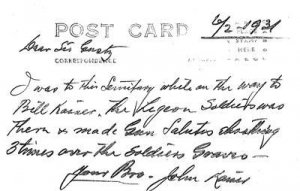 6/2-1931
POST CARD
Dear Sis
STAMP
HERE
CORRESPONDENCE
I was to this Semitary while on the way to
Bill Kaiser. The Legeon Soldiers was
there & made Gun Salutes shooting
3 times over the Soldiers Graves—
Your Bro. - John Kaiser